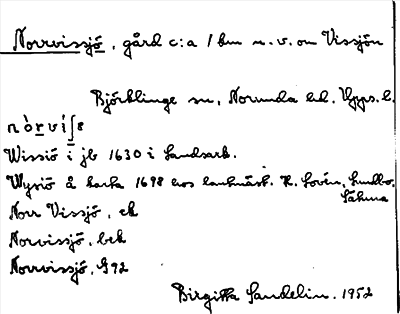 Norrvissjö, gård c:a 1 km n.v. om Vissjön
Björklinge sn, Norunda hd. Upps. l.
nòrvíʃɵ
Wissiö i jb 1630 i Landsark.
Wysiö å karta 1698 hos lantmät. K. Lovén, Lundbo.
Läkma
Norr Vissjö, ek
Norvissjö, bek
Norrvissjö, G92
Birgitta Sandelin. 1952